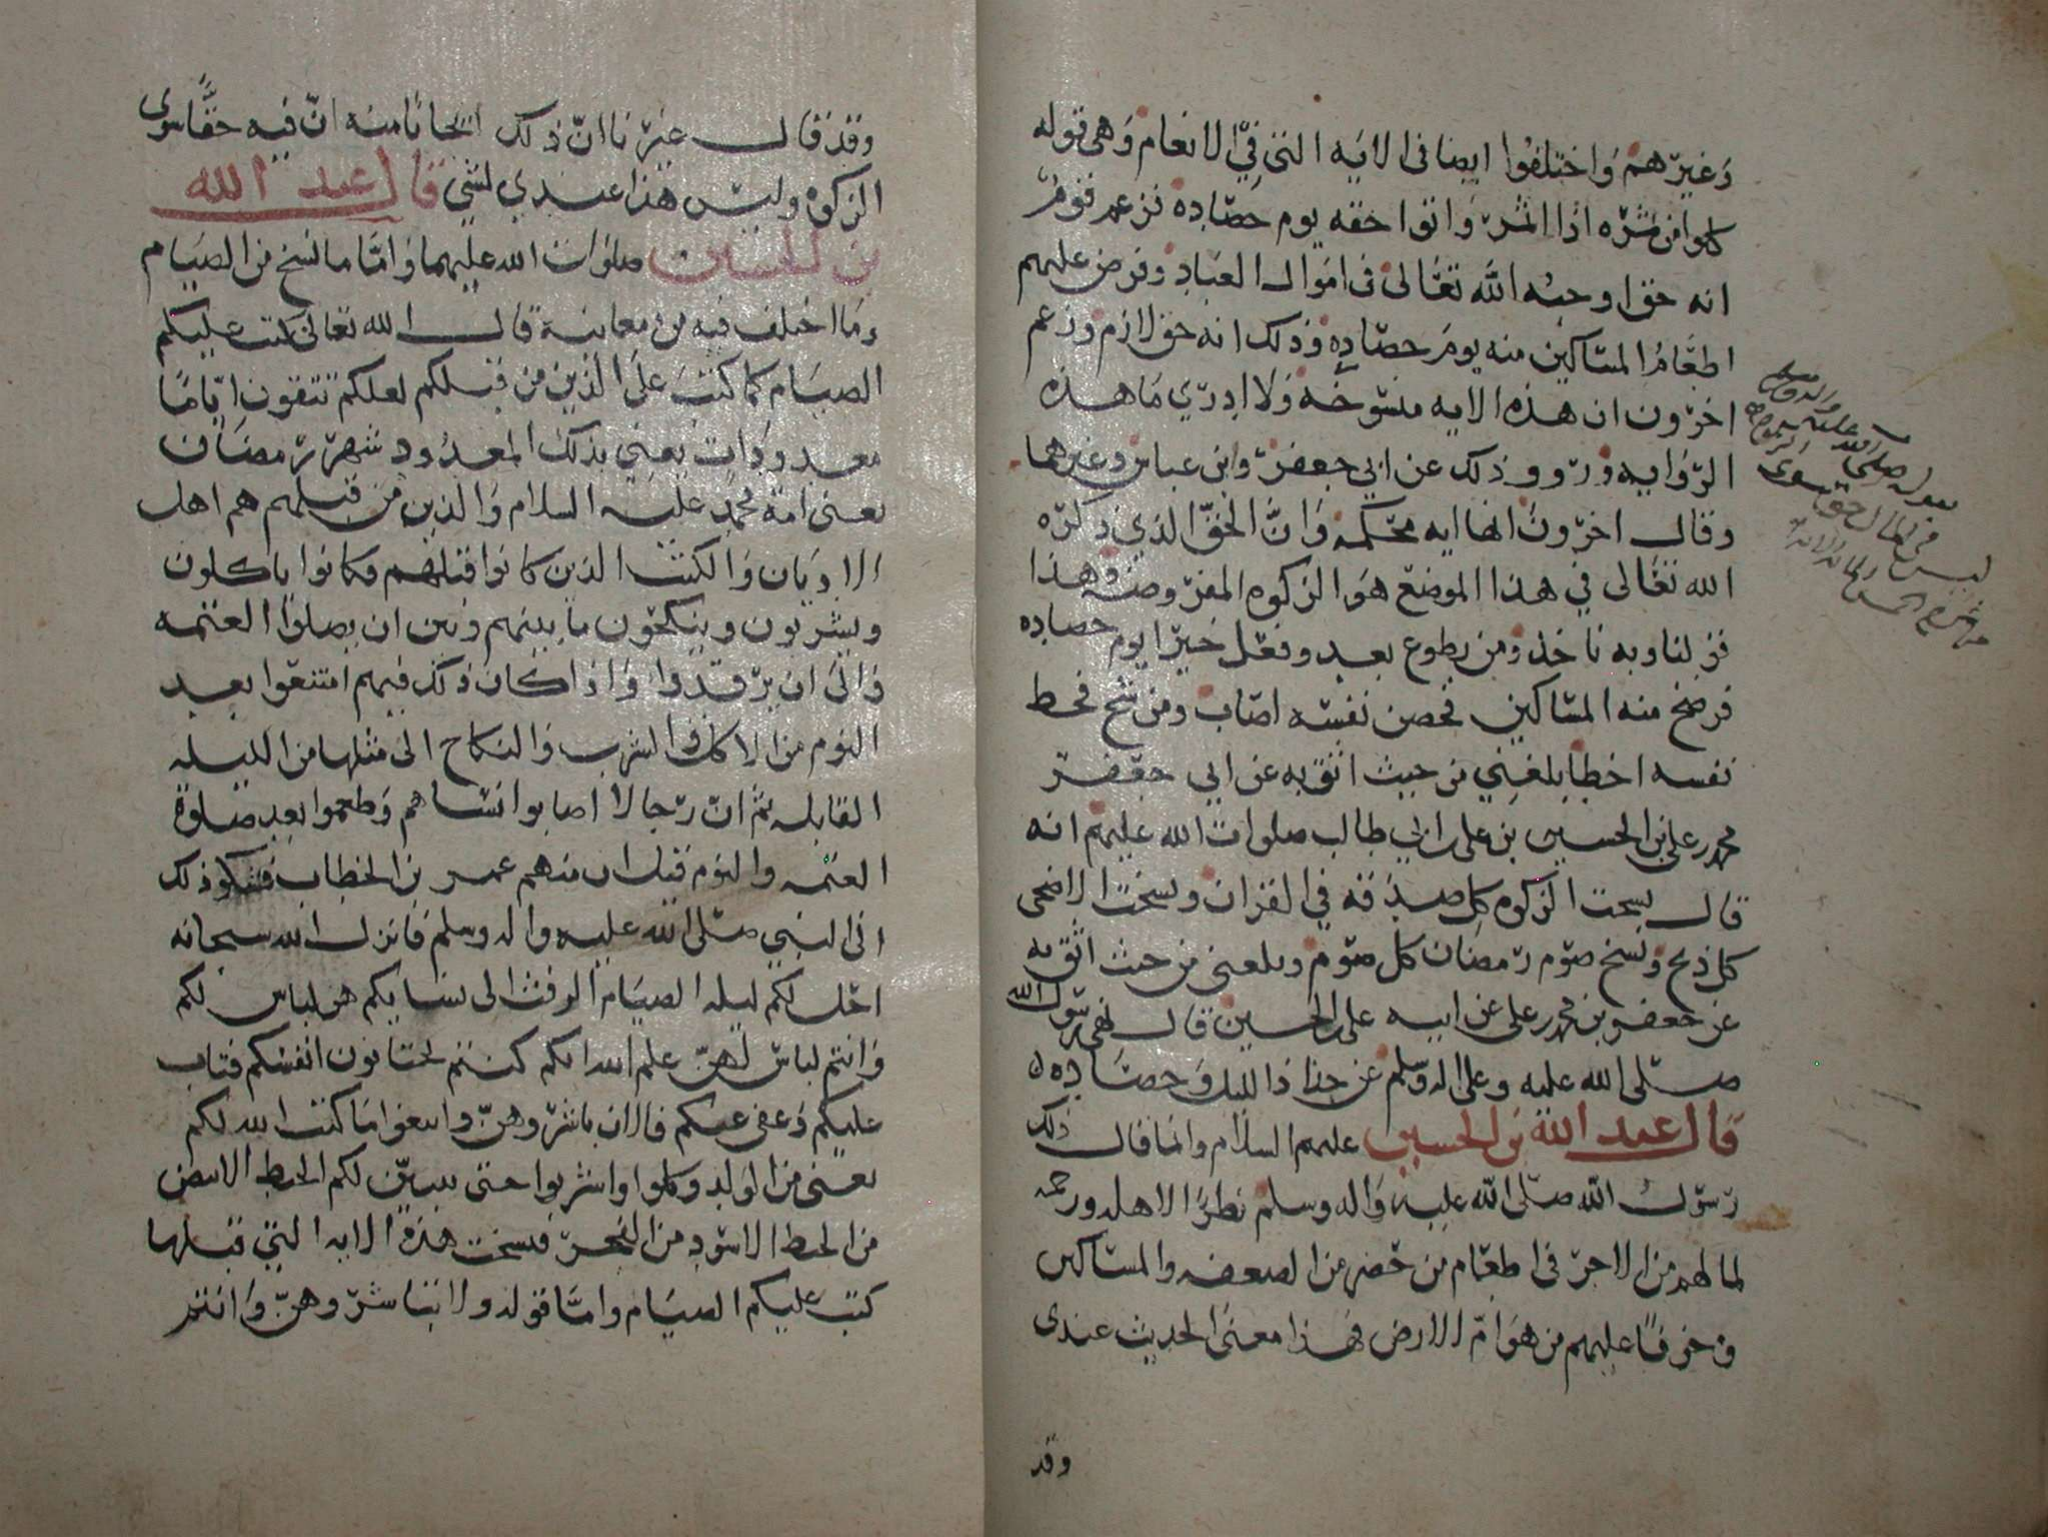 وغيرهم واختلفوا ايضا في الايه التي في الانعام وهي قوله
كلوا من ثمره اذا اثمر واتوا حقه يوم حصاده فزعم قوم
انه حق اوجبه الله تعالى في اموال العباد وفرض عليهم
اطعام المساكين منه يوم حصاده وذلك انه حق لازم وزعم
اخرون ان هذه الايه منسوخه ولا ادري ما هذه
الروايه ورووا ذلك عن ابي جعفر وابن عباس وغيرهما
وقال اخرون انها ايه محكمه وان الحق الذي ذكره
الله تعالى في هذا الموضع هو الزكوه المفروضه وهذا
قولنا وبه ناخذ ومن يطوع بعد وفعل خيرا يوم حصاده
فرضخ منه المساكين فحصن نفسه اصاب ومن شح فحط
نفسه اخطا بلغني من حيث اثق به عن ابي جعفر
محمد بن علي بن الحسين بن علي بن ابي طالب صلوات الله عليهم انه
قال نسخت الزكوه كل صدقه في القران ونسخت الاضحى
كل ذبح ونسخ صوم رمضان كل صوم وبلغني من حيث اثق به
عن جعفر بن محمد بن علي عن ابيه علي بن الحسين قال نهى رسول الله
صلى الله عليه وعلى اله وسلم عن جذاذ الليل وحصاده
قال عبد الله بن الحسين عليهم السلام وانما قال ذلك
رسول الله صلى الله عليه واله وسلم نظرا لاهله ورحمه
لما لهم من الاجر في اطعام من حضر من الضعفه والمساكين
وخوفا عليهم من هوام الارض فهذا معنى الحديث عندي
وقد
صلى الله عليه واله وسلم
ليس في المال حق سوى الزكوة
وقد قال غيرنا ان ذلك ايجابا منه ان فيه حقا سوى
الزكوه وليس هذا عندي بشي قال عبد الله
بن الحسين صلوات الله عليهما واما ما نسخ من الصيام
وما اختلف فيه من معانيه قال الله تعالى كتب عليكم
الصيام كما كتب على الذين من قبلكم لعلكم تتقون اياما
معدودات يعني بذلك المعدود شهر رمضان
يعني امة محمد عليه السلام والذين من قبلهم هم اهل
الاديان والكتب الذين كانوا قبلهم فكانوا ياكلون
ويشربون وينكحون ما بينهم وبين ان يصلوا العتمه
والى ان يرقدوا واذا كان ذلك فيهم امتنعوا بعد
النوم من الاكل والشرب والنكاح الى مثلها من الليله
القابله ثم ان رجالا اصابوا نساهم وطعموا بعد صلوة
العتمه والنوم قيل ان منهم عمر بن الخطاب فشكو ذلك
الى النبي صلى الله عليه واله وسلم فانزل الله سبحانه
احل لكم ليله الصيام الرفث الى نسايكم هن لباس لكم
وانتم لباس لهن علم الله انكم كنتم تختانون انفسكم فتاب
عليكم وعفى عنكم فالان باشروهن وابتغوا ما كتب الله لكم
يعني من الولد وكلوا واشربوا حتى يتبين لكم الخيط الابيض
من الخيط الاسود من الفجر فنسخت هذه الايه التي قبلها
كتب عليكم الصيام واما قوله ولا تباشروهن وانتم